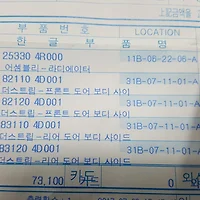 상품금액을
부 품 번 호 LOCATION
한 글 부 품 명
25330 4R000 11B-06-22-06-A
어셈블리-라디에이터
82110 4D001 31B-07-11-01-A
더스트립-프론트 도어 보디 사이
82120 4D001 31B-07-11-01-A
더스트립-프론트 도어 보디 사이드
83110 4D001 31B-07-11-01-A
더스트립-리어 도어 보디 사이드
83120 4D001 31B-07-11-01-A
더스트립-리어 도어 보디 사이드
73,100 카드 0